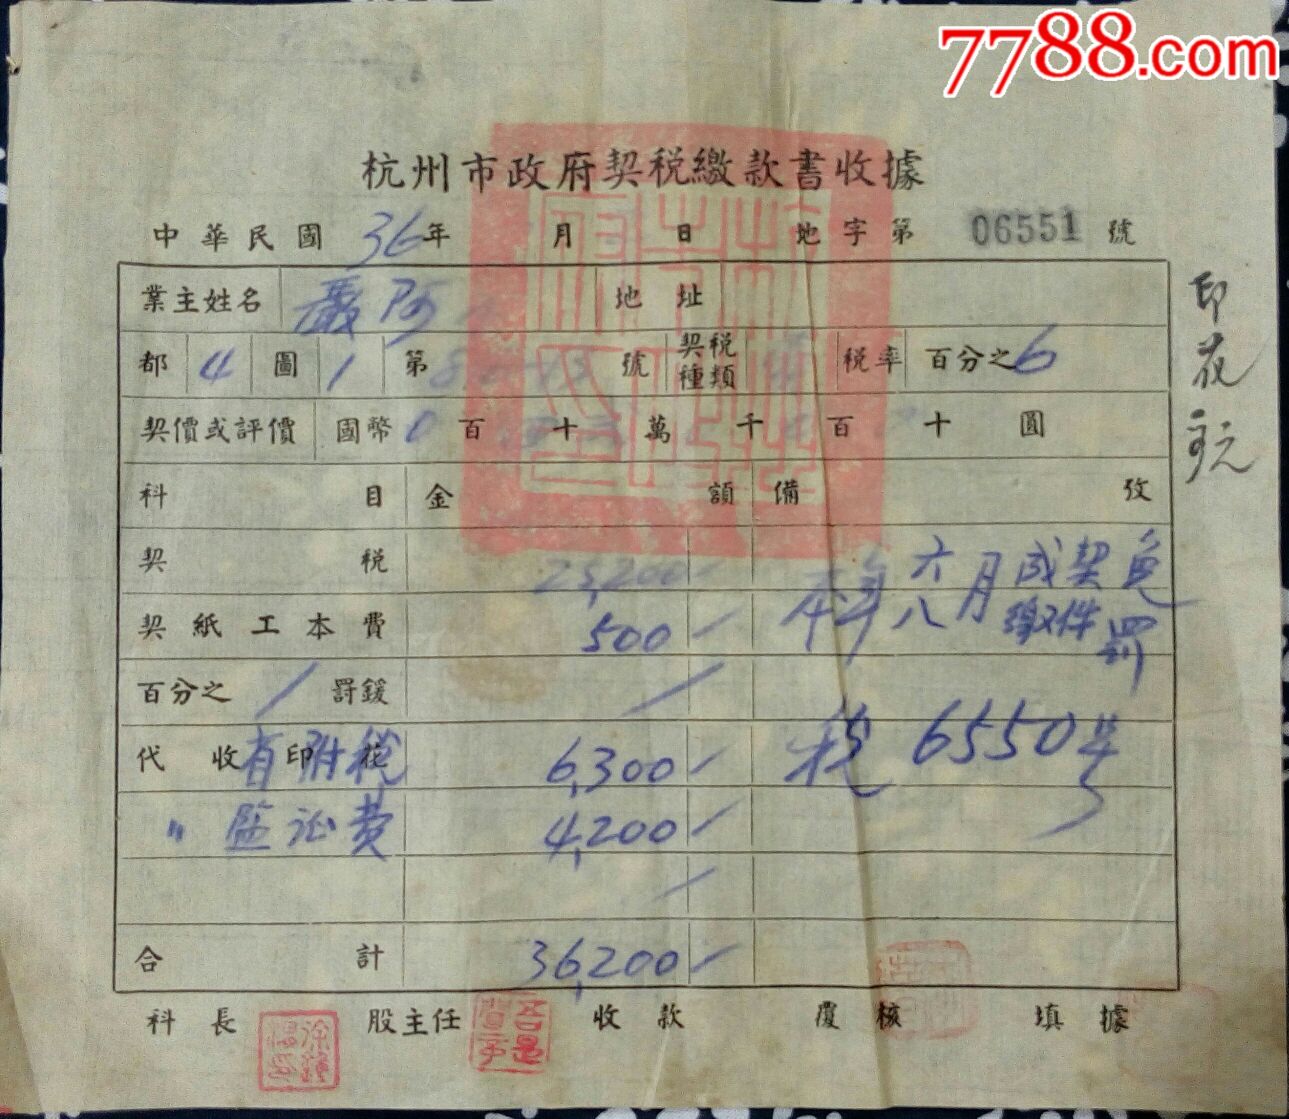 7788.com
杭州市政府契税繳款書收據
中華民國 36年 月 日 地字第 06551 號
業主姓名 嚴阿 地址
都 4 圖 1 第 號 契税種類 税率 百分之 6
契價或評價 國幣 0 百 十 萬 千 百 十 圓
科目 金額 備攷
契税 25,200
契紙工本費 500
本年六月成契免
八 繳件 罰
百分之 / 罰鍰
代收印花 附税 6,300
税 6550号
〃 监证费 4,200
合計 36,200
科長 股主任 收款 覆核 填據
印花